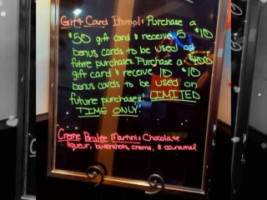 Gift Card Promo! Purchase a
$50 gift card & receive 5 $10
bonus cards to be used on
future purchases. Purchase a $100
gift card & receive 10 $10
bonus cards to be used on
future purchases. LIMITED
TIME ONLY.
Creme Brulee Martini: Chocolate
liqueur, butershots, creme, & caramel